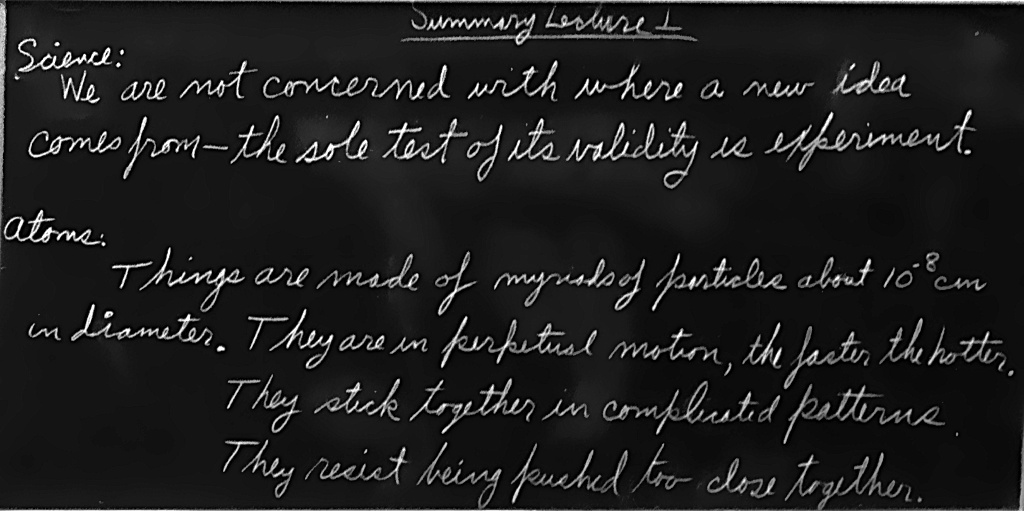 Summary Lecture 1
Science:
We are not concerned with where a new idea
comes from – the sole test of its validity is experiment.
Atoms:
Things are made of myriads of particles about 10⁻⁸ cm
in diameter. They are in perpetual motion, the faster the hotter.
They stick together in complicated patterns.
They resist being pushed too close together.